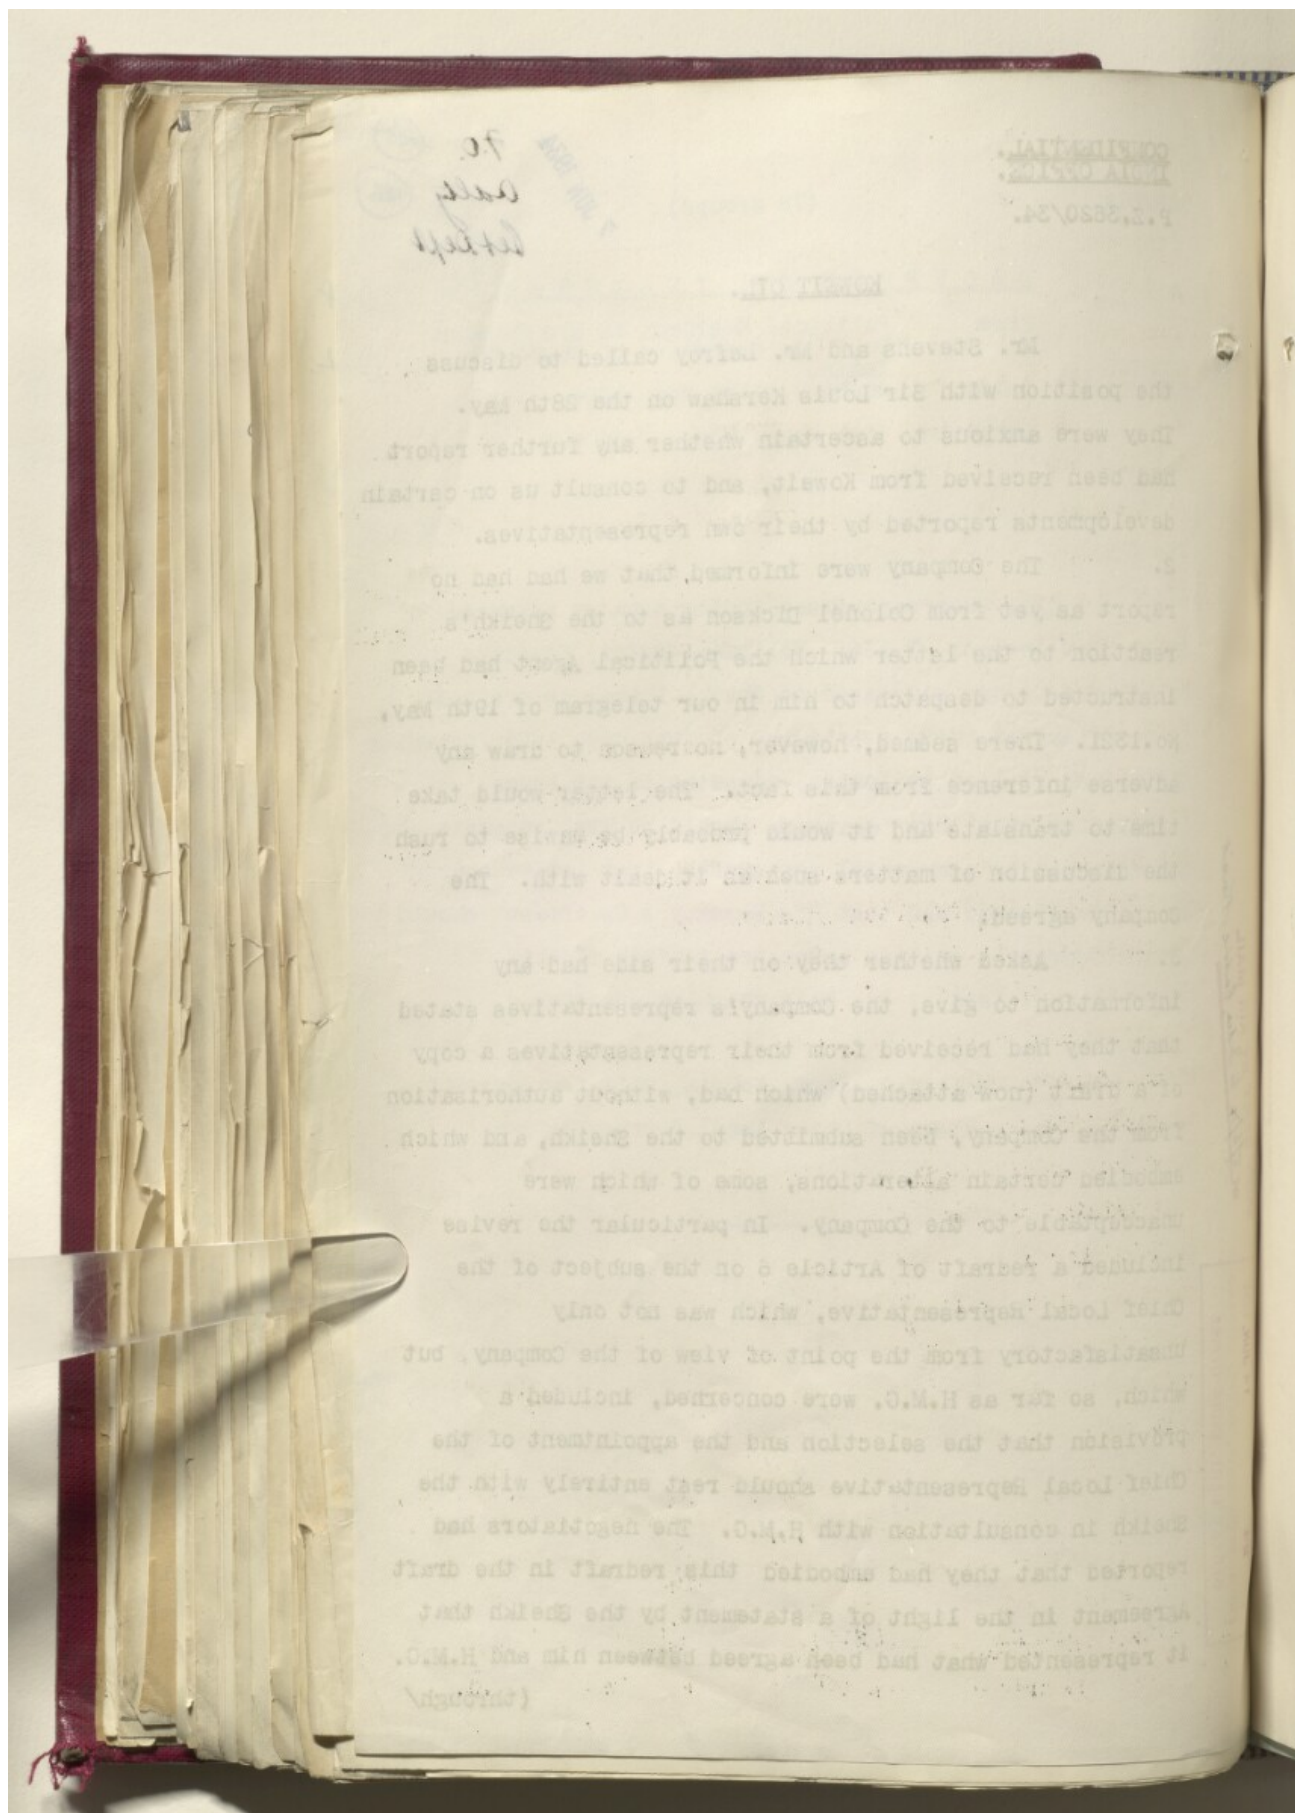 CONFIDENTIAL.
INDIA OFFICE.
P.Z.3620/34.
KOWEIT OIL.
Mr. Stevens and Mr. Lefroy called to discuss
the position with Sir Louis Kershaw on the 28th May.
They were anxious to ascertain whether any further report
had been received from Koweit, and to consult us on certain
developments reported by their own representatives.
2. The Company were informed that we had had no
report as yet from Colonel Dickson as to the Sheikh's
reaction to the letter which the Political Agent had been
instructed to despatch to him in our telegram of 19th May,
No.1321. There seemed, however, no reason to draw any
adverse inference from this fact. The letter would take
time to translate and it would probably be unwise to rush
the discussion of matters such as it dealt with. The
Company agreed.
3. Asked whether they on their side had any
information to give, the Company's representatives stated
that they had received from their representatives a copy
of a draft (now attached) which had, without authorisation
from the Company, been submitted to the Sheikh, and which
embodied certain alterations, some of which were
unacceptable to the Company. In particular the revise
included a redraft of Article 6 on the subject of the
Chief Local Representative, which was not only
unsatisfactory from the point of view of the Company, but
which, so far as H.M.G. were concerned, included a
provision that the selection and the appointment of the
Chief Local Representative should rest entirely with the
Sheikh in consultation with H.M.G. The negotiators had
reported that they had embodied this redraft in the draft
Agreement in the light of a statement by the Sheikh that
it represented what had been agreed between him and H.M.G.
(through/